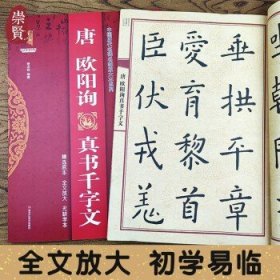 崇賢
唐 欧阳询 真书千字文
唐 欧阳询真书千字文
垂拱平章
愛育黎首
臣伏戎
全文放大 初学易临